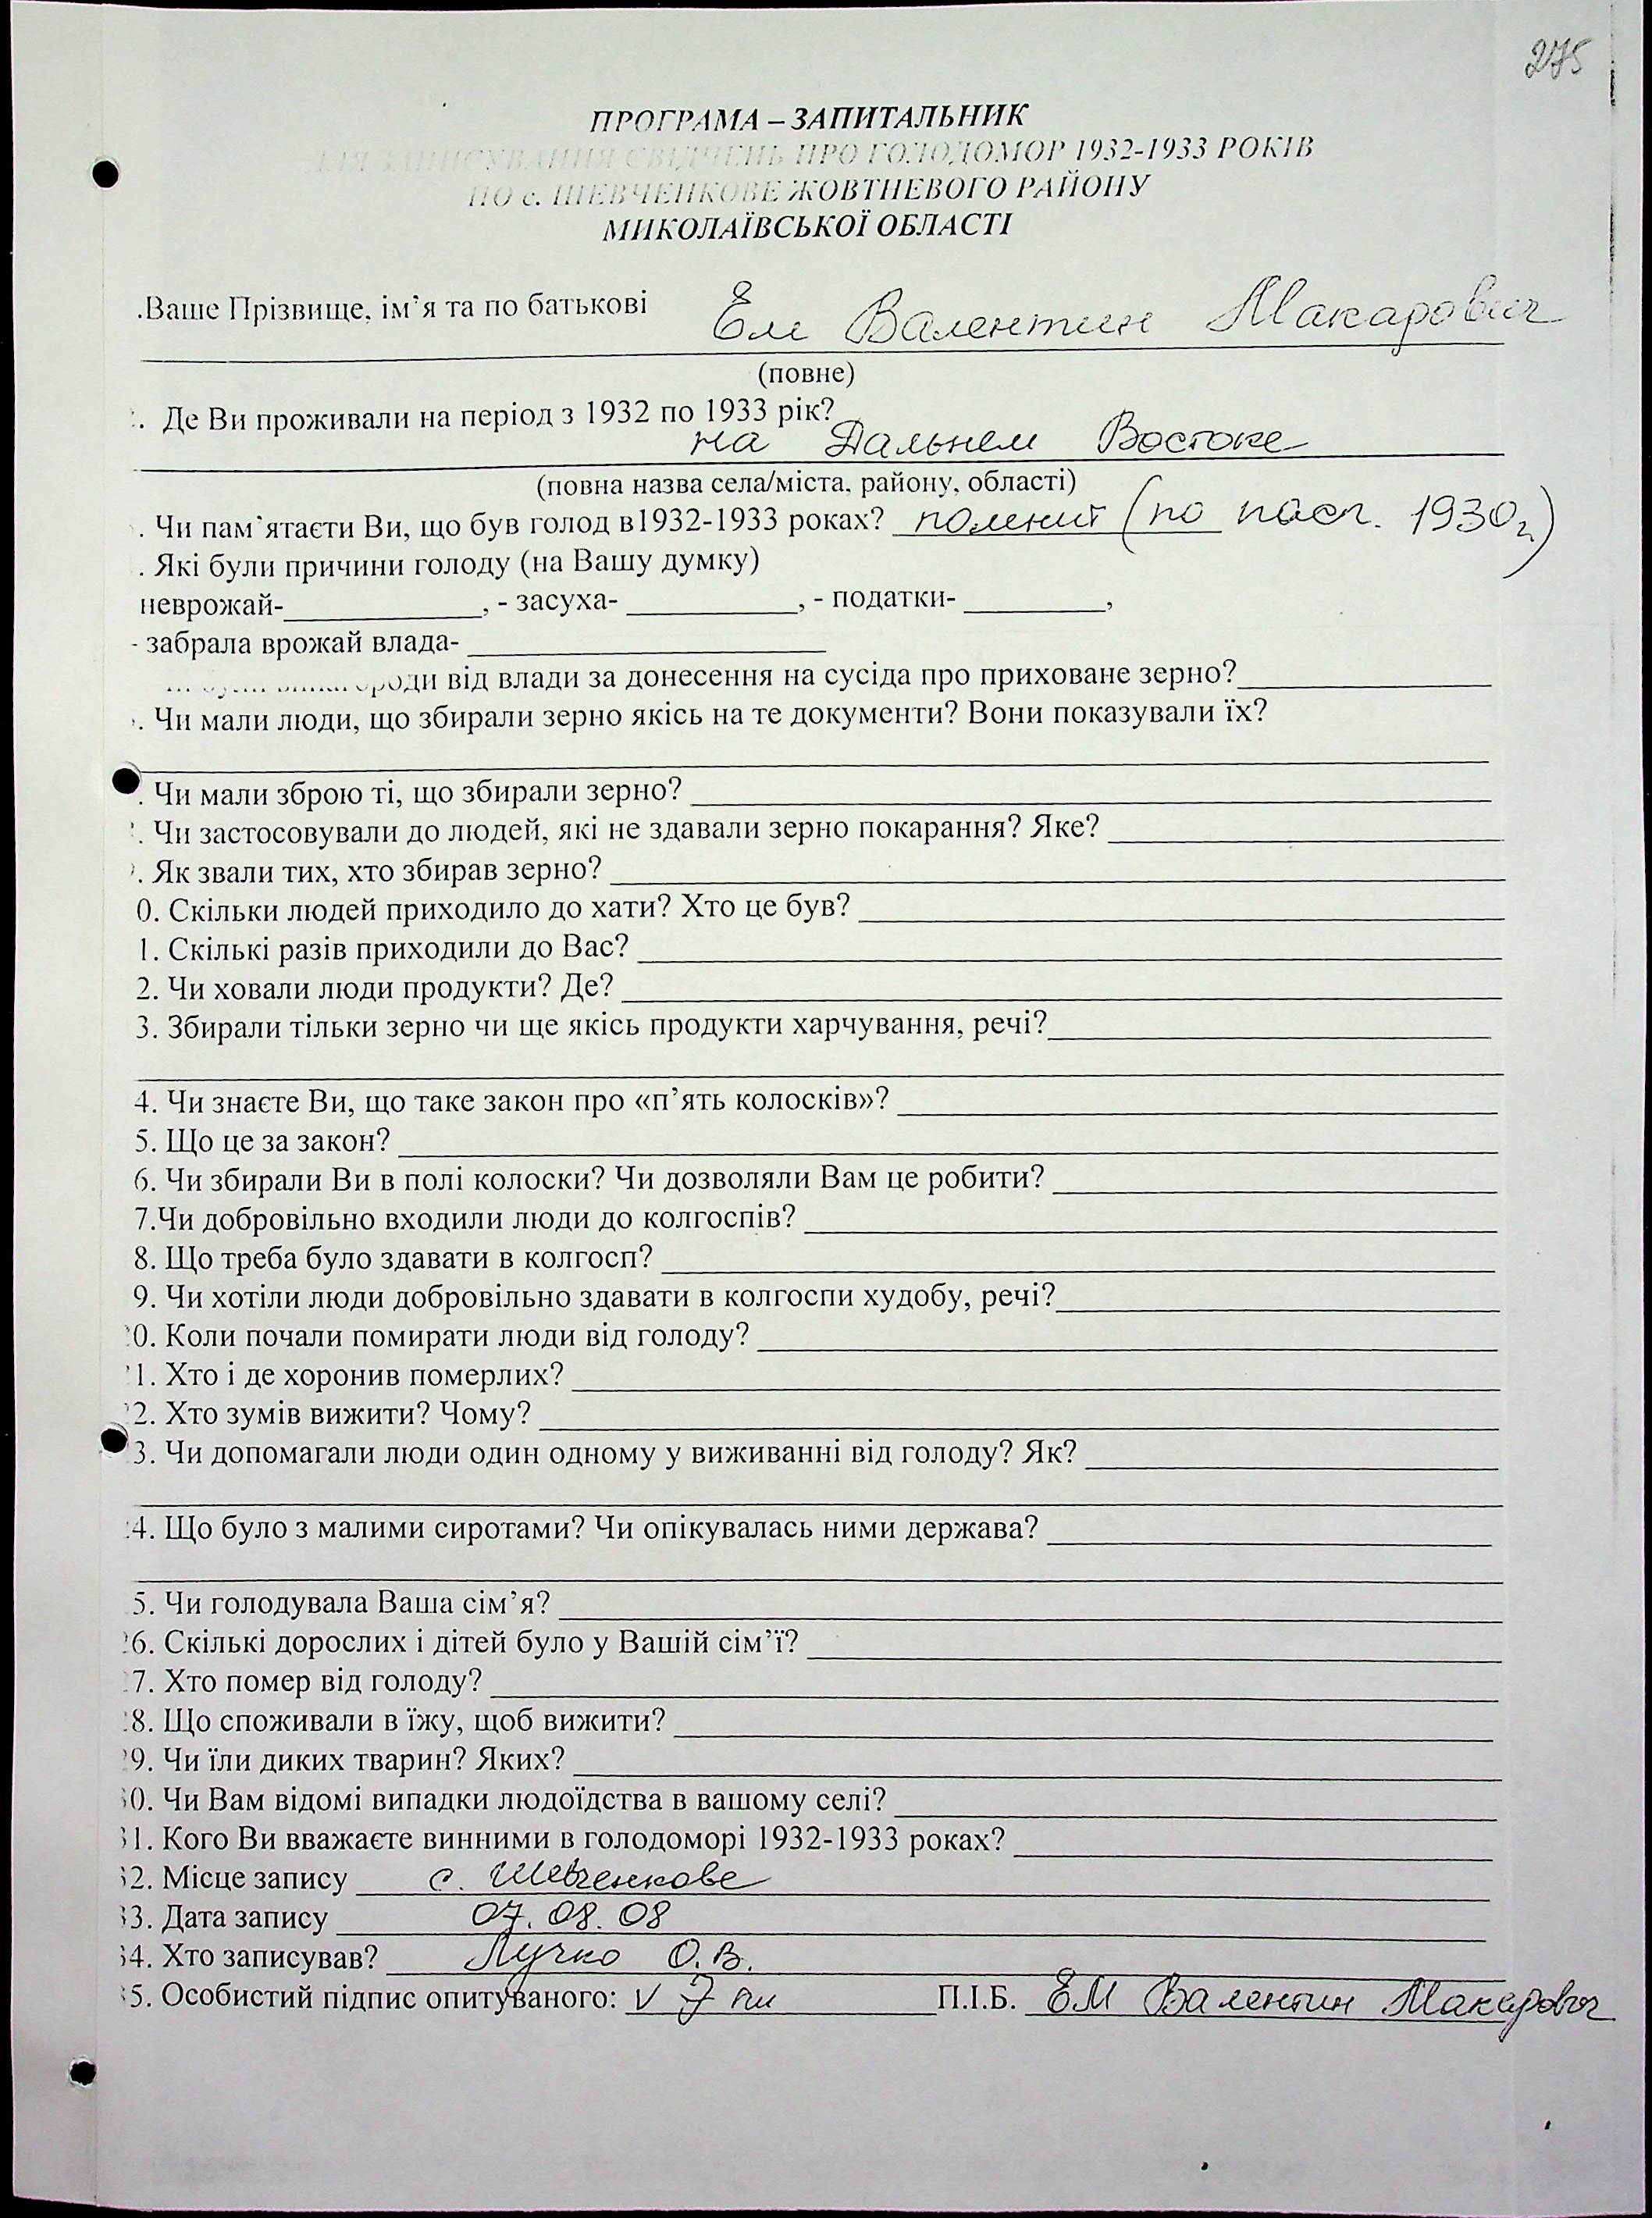 275
ПРОГРАМА – ЗАПИТАЛЬНИК
ДЛЯ ЗАПИСУВАННЯ СВІДЧЕНЬ ПРО ГОЛОДОМОР 1932-1933 РОКІВ
ПО с. ШЕВЧЕНКОВЕ ЖОВТНЕВОГО РАЙОНУ
МИКОЛАЇВСЬКОЇ ОБЛАСТІ
.Ваше Прізвище, ім’я та по батькові Ем Валентин Макарович
(повне)
. Де Ви проживали на період з 1932 по 1933 рік?
на Дальнем Востоке
(повна назва села/міста, району, області)
. Чи пам’ятаєти Ви, що був голод в1932-1933 роках? (по пасп. 1930г.)
. Які були причини голоду (на Вашу думку)
неврожай-____________, - засуха- ___________, - податки- _________,
- забрала врожай влада- ______________________
від влади за донесення на сусіда про приховане зерно?
. Чи мали люди, що збирали зерно якісь на те документи? Вони показували їх?
. Чи мали зброю ті, що збирали зерно?
. Чи застосовували до людей, які не здавали зерно покарання? Яке?
. Як звали тих, хто збирав зерно?
0. Скільки людей приходило до хати? Хто це був?
1. Скількі разів приходили до Вас?
2. Чи ховали люди продукти? Де?
3. Збирали тільки зерно чи ще якісь продукти харчування, речі?
4. Чи знаєте Ви, що таке закон про «п’ять колосків»?
5. Що це за закон?
6. Чи збирали Ви в полі колоски? Чи дозволяли Вам це робити?
7.Чи добровільно входили люди до колгоспів?
8. Що треба було здавати в колгосп?
9. Чи хотіли люди добровільно здавати в колгоспи худобу, речі?
0. Коли почали помирати люди від голоду?
1. Хто і де хоронив померлих?
2. Хто зумів вижити? Чому?
3. Чи допомагали люди один одному у виживанні від голоду? Як?
4. Що було з малими сиротами? Чи опікувалась ними держава?
5. Чи голодувала Ваша сім’я?
6. Скількі дорослих і дітей було у Вашій сім’ї?
7. Хто помер від голоду?
8. Що споживали в їжу, щоб вижити?
9. Чи їли диких тварин? Яких?
0. Чи Вам відомі випадки людоїдства в вашому селі?
31. Кого Ви вважаєте винними в голодоморі 1932-1933 роках?
32. Місце запису с. Шевченкове
33. Дата запису 07.08.08
34. Хто записував? Лучко О.В.
5. Особистий підпис опитуваного: V П.І.Б. ЕМ Валентин Макарович